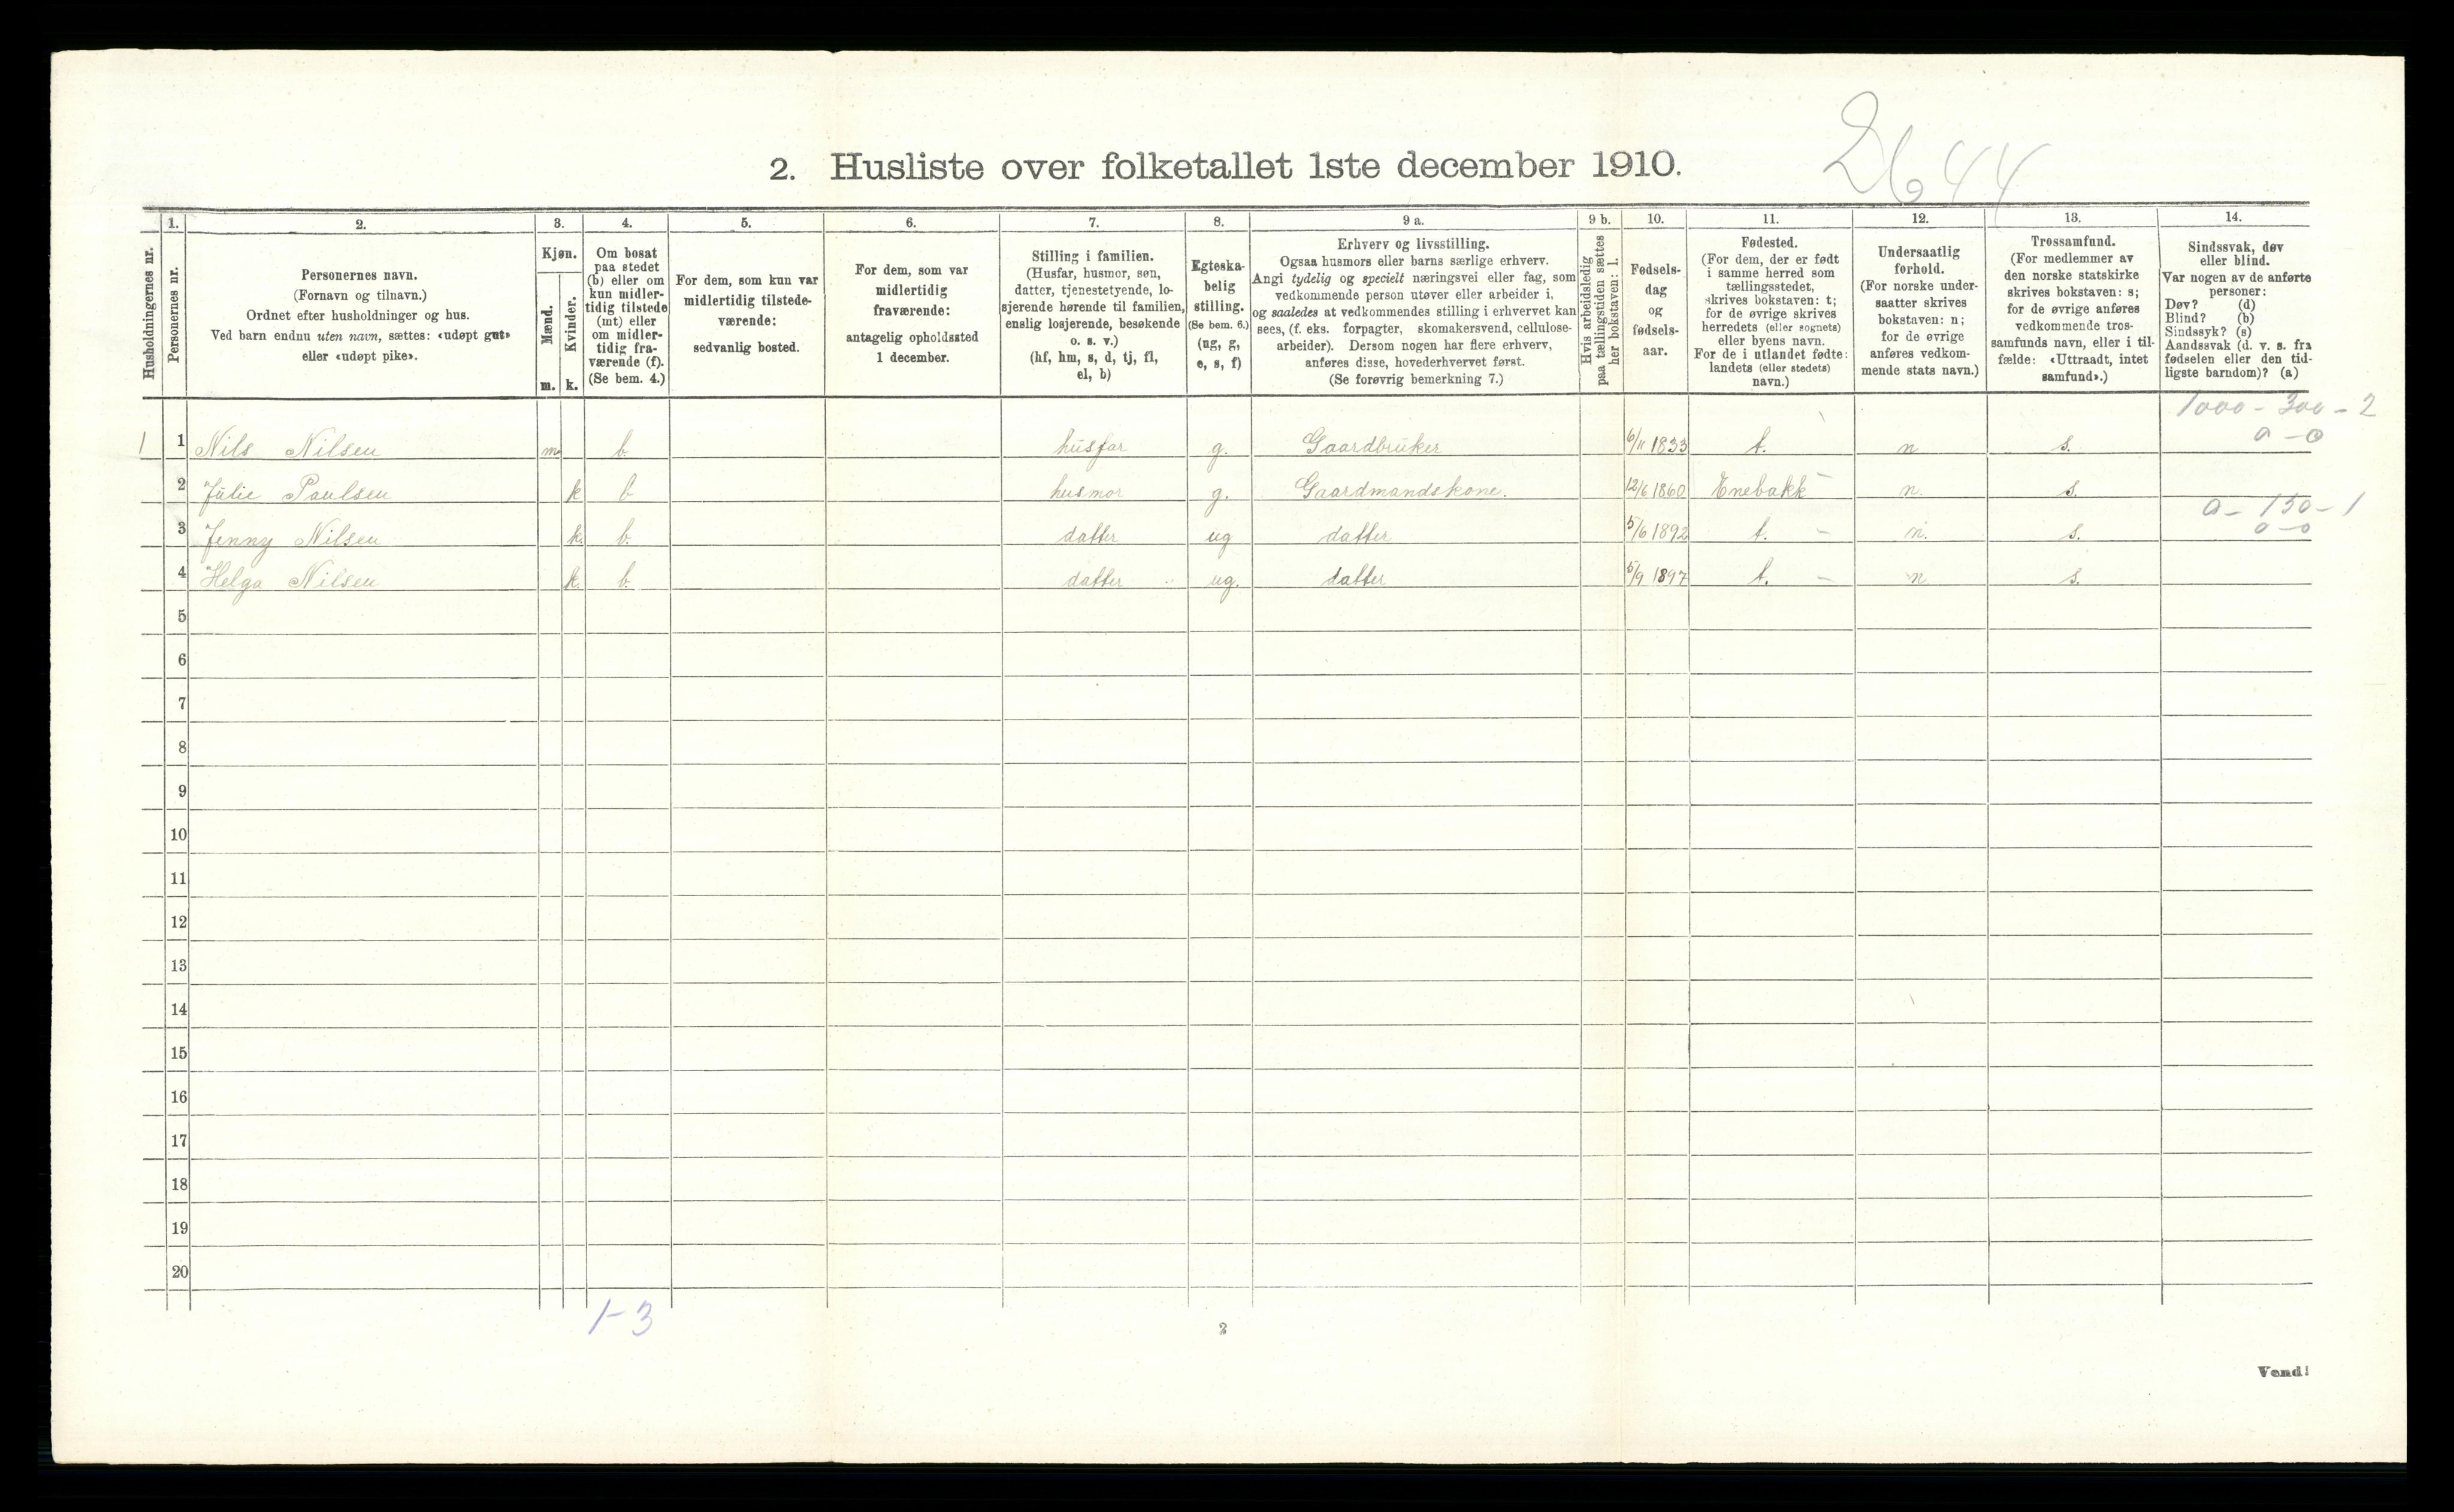 2644
2. Husliste over folketallet 1ste december 1910.
Husholdningernes nr.
1. Personernes nr.
2. Personernes navn.
(Fornavn og tilnavn.)
Ordnet efter husholdninger og hus.
Ved barn endnu uten navn, sættes: «udøpt gut»
eller «udøpt pike».
3. Kjøn.
Mænd. m.
Kvinder. k.
4. Om bosat
paa stedet
(b) eller om
kun midler-
tidig tilstede
(mt) eller
om midler-
tidig fra-
værende (f).
(Se bem. 4.)
5. For dem, som kun var
midlertidig tilstede-
værende:
sedvanlig bosted.
6. For dem, som var
midlertidig
fraværende:
antagelig opholdssted
1 december.
7. Stilling i familien.
(Husfar, husmor, søn,
datter, tjenestetyende, lo-
sjerende hørende til familien,
enslig losjerende, besøkende
o. s. v.)
(hf, hm, s, d, tj, fl,
el, b)
8. Egteska-
belig
stilling.
(Se bem. 6.)
(ug, g,
e, s, f)
9 a. Erhverv og livsstilling.
Ogsaa husmors eller barns særlige erhverv.
Angi tydelig og specielt næringsvei eller fag, som
vedkommende person utøver eller arbeider i,
og saaledes at vedkommendes stilling i erhvervet kan
sees, (f. eks. forpagter, skomakersvend, cellulose-
arbeider). Dersom nogen har flere erhverv,
anføres disse, hovederhvervet først.
(Se forøvrig bemerkning 7.)
9 b. Hvis arbeidsledig
paa tællingstiden sættes
her bokstaven: l.
10. Fødsels-
dag
og
fødsels-
aar.
11. Fødested.
(For dem, der er født
i samme herred som
tællingsstedet,
skrives bokstaven: t;
for de øvrige skrives
herredets (eller sognets)
eller byens navn.
For de i utlandet fødte:
landets (eller stedets)
navn.)
12. Undersaatlig
forhold.
(For norske under-
saatter skrives
bokstaven: n;
for de øvrige
anføres vedkom-
mende stats navn.)
13. Trossamfund.
(For medlemmer av
den norske statskirke
skrives bokstaven: s;
for de øvrige anføres
vedkommende tros-
samfunds navn, eller i til-
fælde: «Uttraadt, intet
samfund».)
14. Sindssvak, døv
eller blind.
Var nogen av de anførte
personer:
Døv? (d)
Blind? (b)
Sindssyk? (s)
Aandssvak (d. v. s. fra
fødselen eller den tid-
ligste barndom)? (a)
1000 - 300 - 2
0 - 0
1 1 Nils Nilsen m b husfar g. Gaardbruker 6/11 1833 t. n s.
2 Julie Paulsen k b husmor g. Gaardmandskone. 12/6 1860 Enebakk n. s.
0 - 150 - 1
0 - 0
3 Jenny Nilsen k. b. datter ug datter 5/6 1892 t. - n. s.
4 Helga Nilsen k. b. datter ug. datter 5/9 1897 t. - n s.
5
6
7
8
9
10
11
12
13
14
15
16
17
18
19
20
1-3
2
Vend!